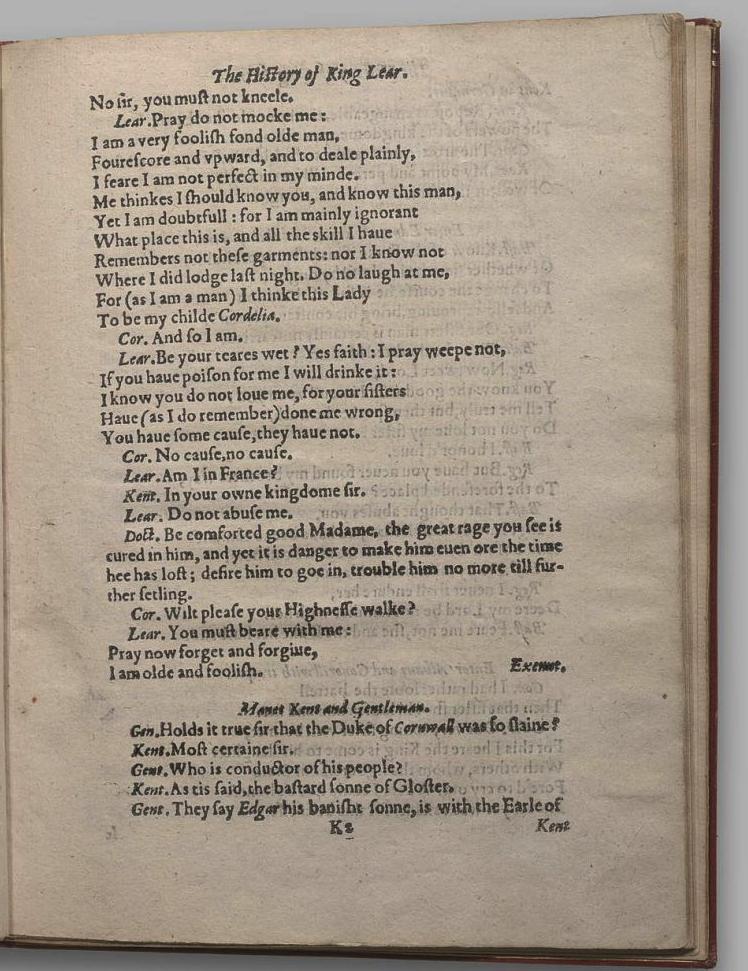 The Hiſtory of King Lear.
No ſir, you muſt not kneele.
Lear. Pray do not mocke me:
I am a very fooliſh fond olde man,
Foureſcore and vpward, and to deale plainly,
I feare I am not perfect in my minde.
Me thinkes I ſhould know you, and know this man,
Yet I am doubtfull: for I am mainly ignorant
What place this is, and all the skill I haue
Remembers not theſe garments: nor I know not
Where I did lodge laſt night. Do no laugh at me,
For (as I am a man) I thinke this Lady
To be my childe Cordelia.
Cor. And ſo I am.
Lear. Be your teares wet? Yes faith: I pray weepe not,
If you haue poiſon for me I will drinke it:
I know you do not loue me, for your ſiſters
Haue (as I do remember) done me wrong,
You haue ſome cauſe, they haue not.
Cor. No cauſe, no cauſe.
Lear. Am I in France?
Kent. In your owne kingdome ſir.
Lear. Do not abuſe me.
Doct. Be comforted good Madame, the great rage you ſee is
cured in him, and yet it is danger to make him euen ore the time
hee has loſt; deſire him to goe in, trouble him no more till fur-
ther ſetling.
Cor. Wilt pleaſe your Highneſſe walke?
Lear. You muſt beare with me:
Pray now forget and forgiue,
I am olde and fooliſh. Exeunt.
Manet Kent and Gentleman.
Gen. Holds it true ſir that the Duke of Cornwall was ſo ſlaine?
Kent. Moſt certaine ſir.
Gent. Who is conductor of his people?
Kent. As tis ſaid, the baſtard ſonne of Gloſter.
Gent. They ſay Edgar his baniſht ſonne, is with the Earle of
K2 Kent